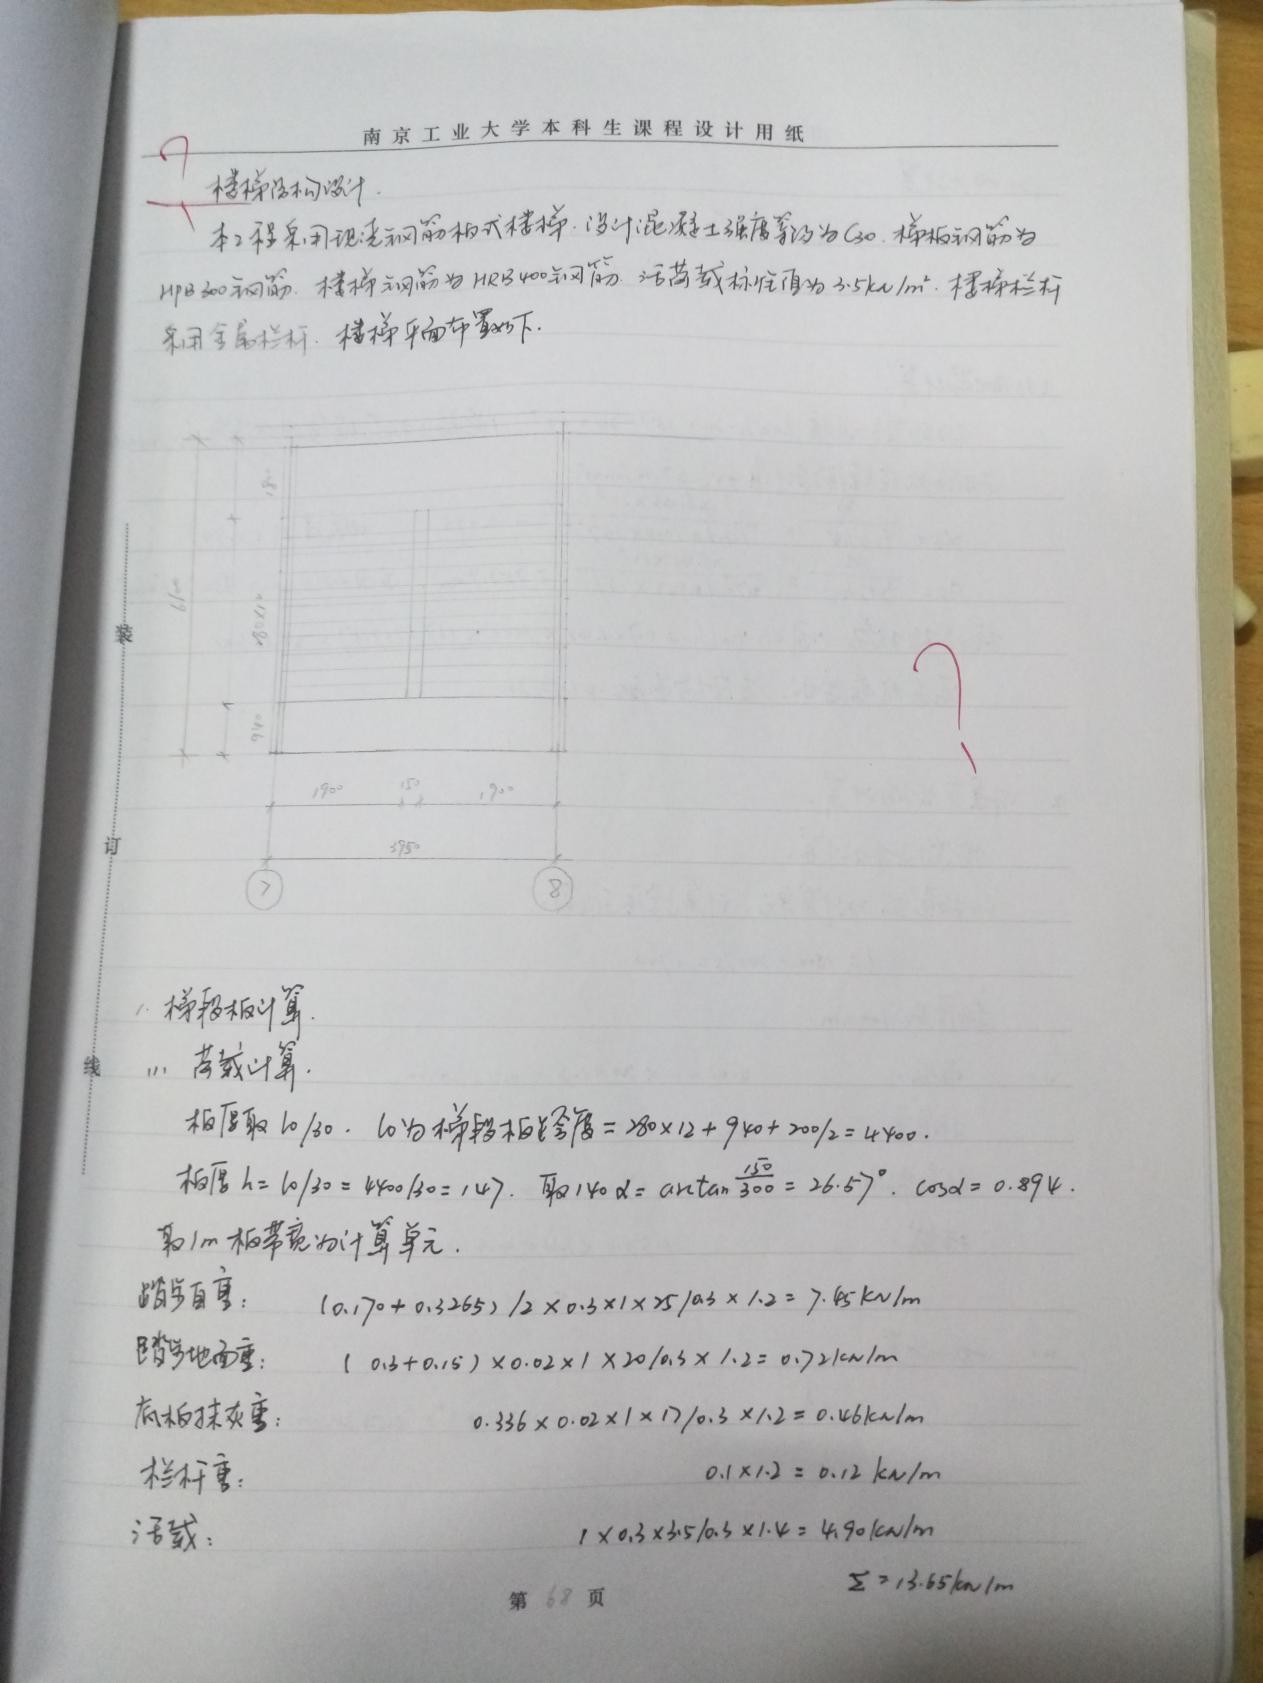 南京工业大学本科生课程设计用纸
楼梯结构设计.
本工程采用现浇钢筋板式楼梯.设计混凝土强度等级为C30.梯板钢筋为
HPB300钢筋.楼梯钢筋为HRB400钢筋.活荷载标准值为3.5kN/m².楼梯栏杆
采用金属栏杆.楼梯平面布置如下.
280×12
940
1900 150 1900
3950
7 8
装
订
线
1.梯段板计算.
(1).荷载计算.
板厚取l0/30.l0为梯段板跨度=280×12+940+200/2=4400.
板厚h=l0/30=4400/30=147.取140 α=arctan 150/300=26.57°.cosα=0.894.
取1m板带宽为计算单元.
踏步自重: (0.170+0.3265)/2×0.3×1×25/0.3×1.2=7.45kN/m
踏步地面重: (0.3+0.15)×0.02×1×20/0.3×1.2=0.72kN/m
底板抹灰重: 0.336×0.02×1×17/0.3×1.2=0.46kN/m
栏杆重: 0.1×1.2=0.12kN/m
活载: 1×0.3×3.5/0.3×1.4=4.90kN/m
Σ=13.65kN/m
第68页